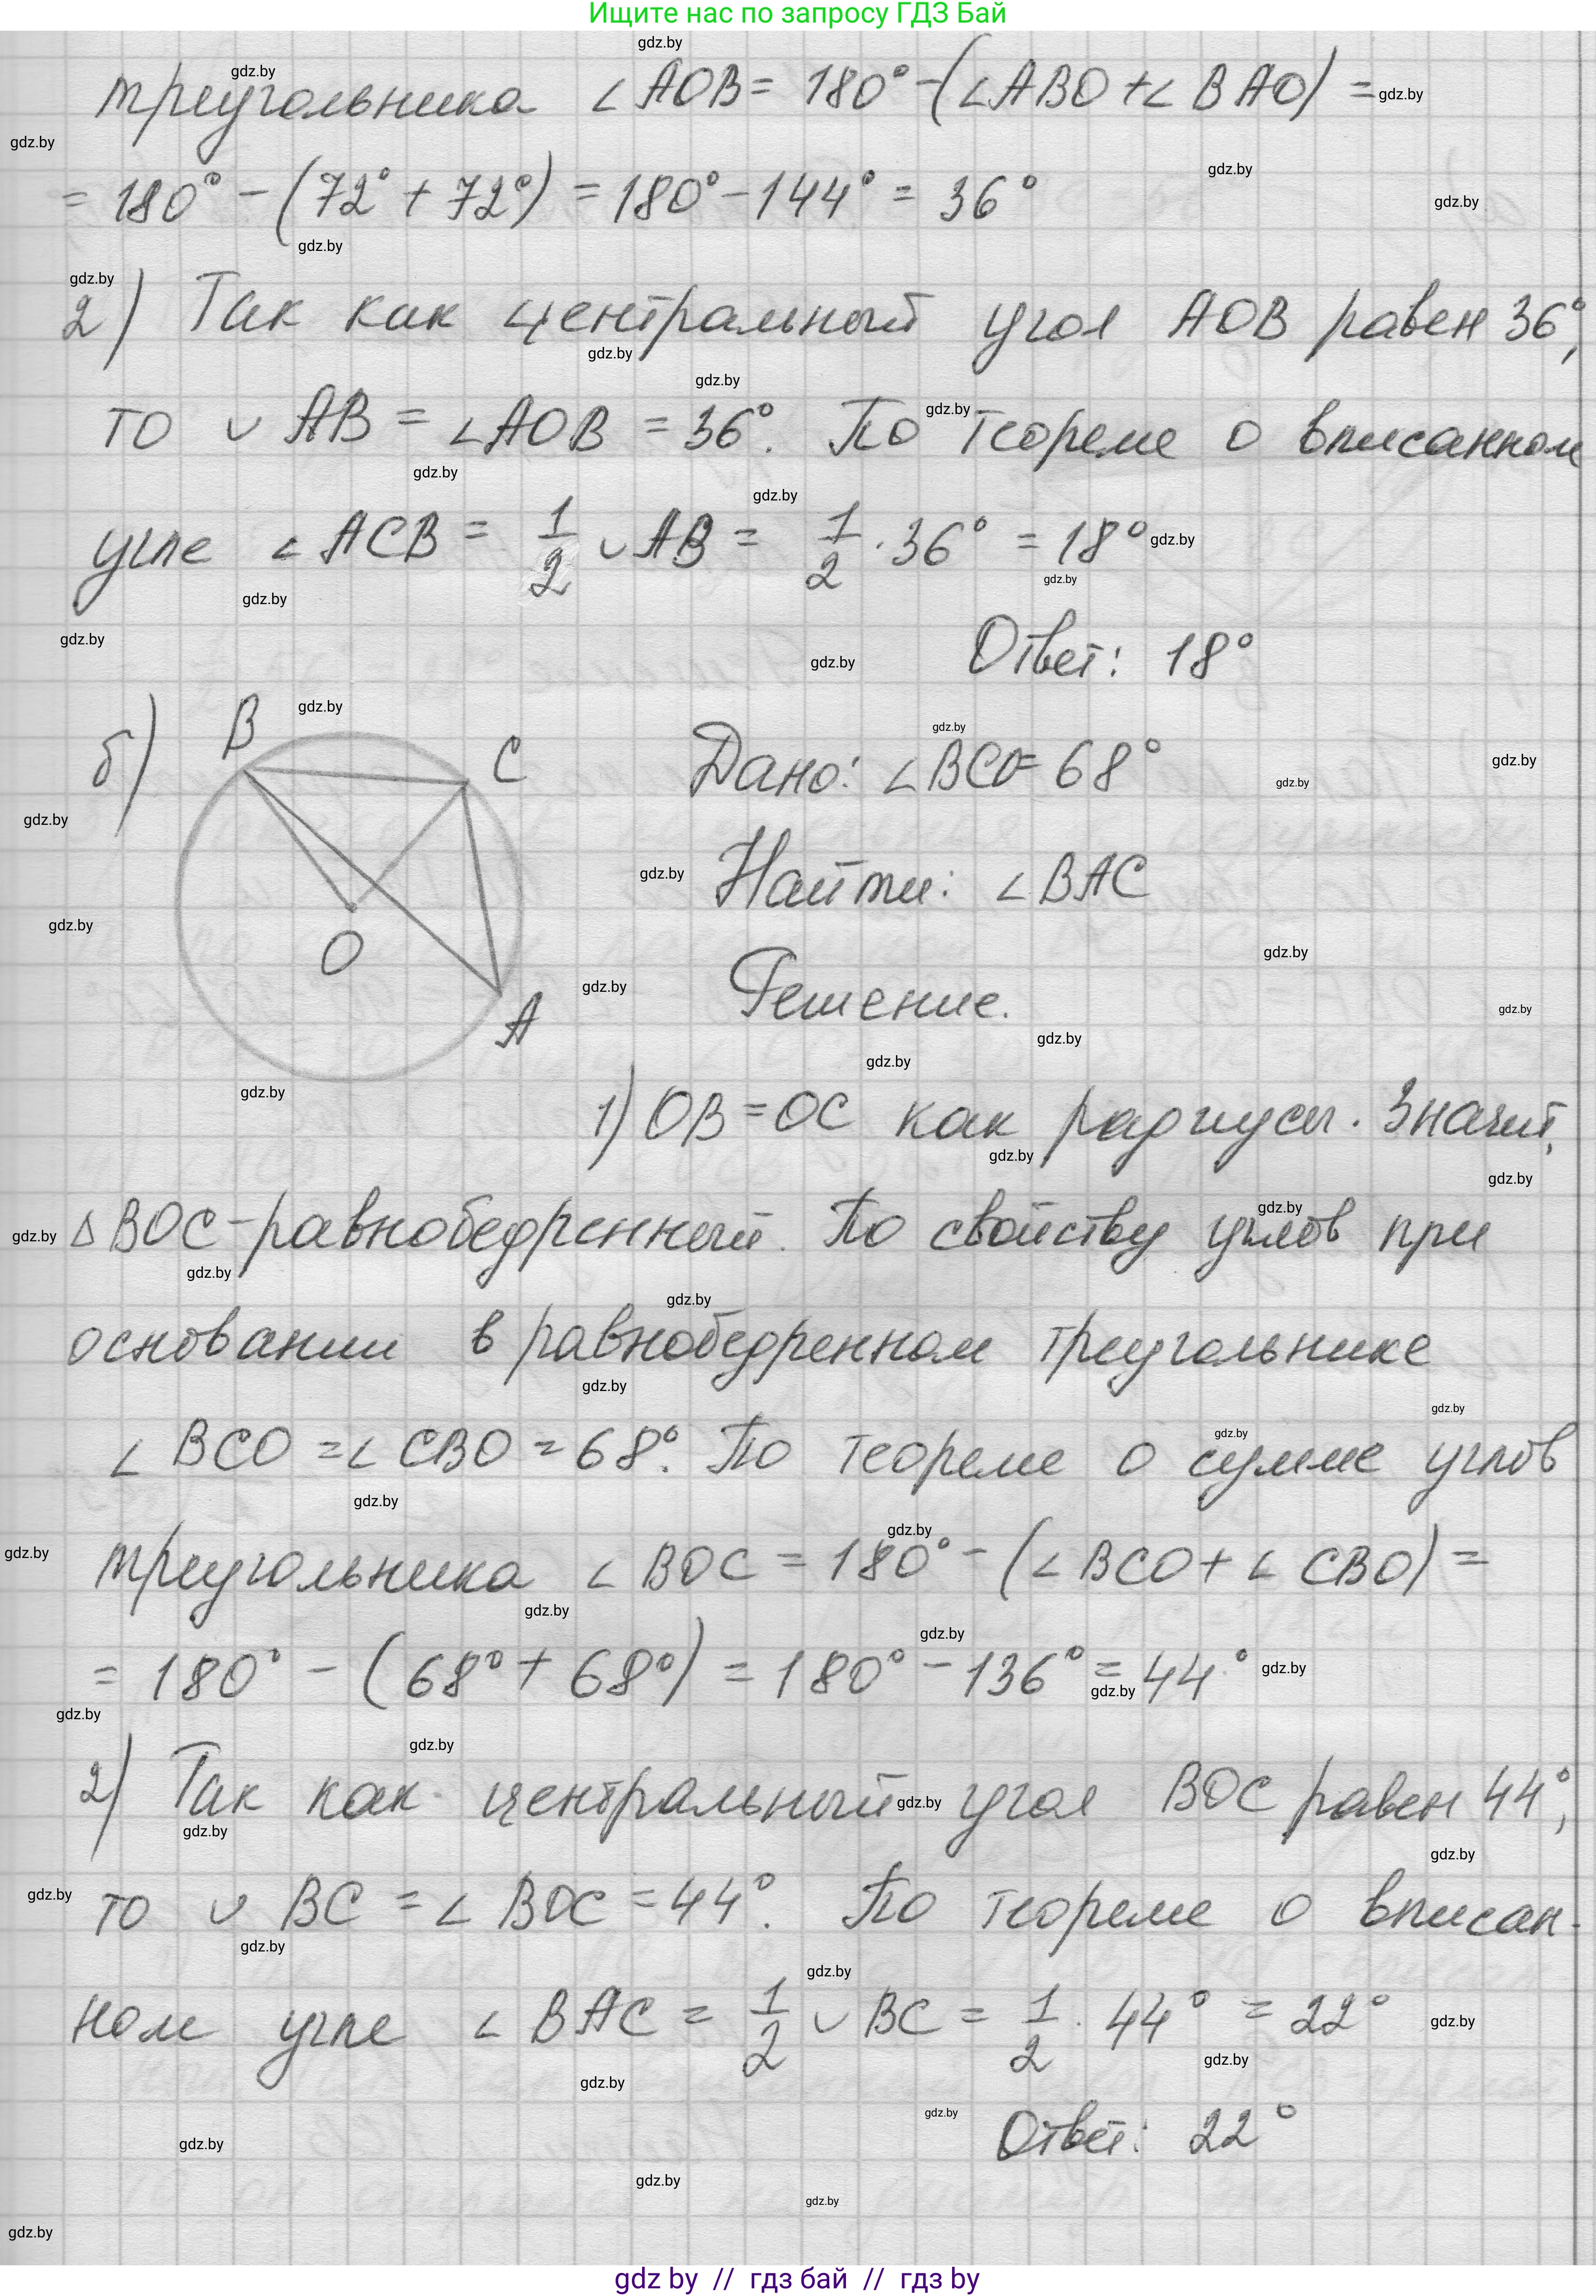 Ищите нас по запросу ГДЗ Бай
треугольника ∠AOB = 180° - (∠ABO + ∠BAO) =
= 180° - (72° + 72°) = 180° - 144° = 36°
2) Так как центральный угол AOB равен 36°,
то ∪AB = ∠AOB = 36°. По теореме о вписанном
угле ∠ACB = 1/2 ∪AB = 1/2 · 36° = 18°
Ответ: 18°
б)
B
C
O
A
Дано: ∠BCO = 68°
Найти: ∠BAC
Решение.
1) OB = OC как радиусы. Значит,
△BOC - равнобедренный. По свойству углов при
основании в равнобедренном треугольнике
∠BCO = ∠CBO = 68°. По теореме о сумме углов
треугольника ∠BOC = 180° - (∠BCO + ∠CBO) =
= 180° - (68° + 68°) = 180° - 136° = 44°
2) Так как центральный угол BOC равен 44°,
то ∪BC = ∠BOC = 44°. По теореме о вписан-
ном угле ∠BAC = 1/2 ∪BC = 1/2 · 44° = 22°
Ответ: 22°
gdz by // гдз бай // гдз by